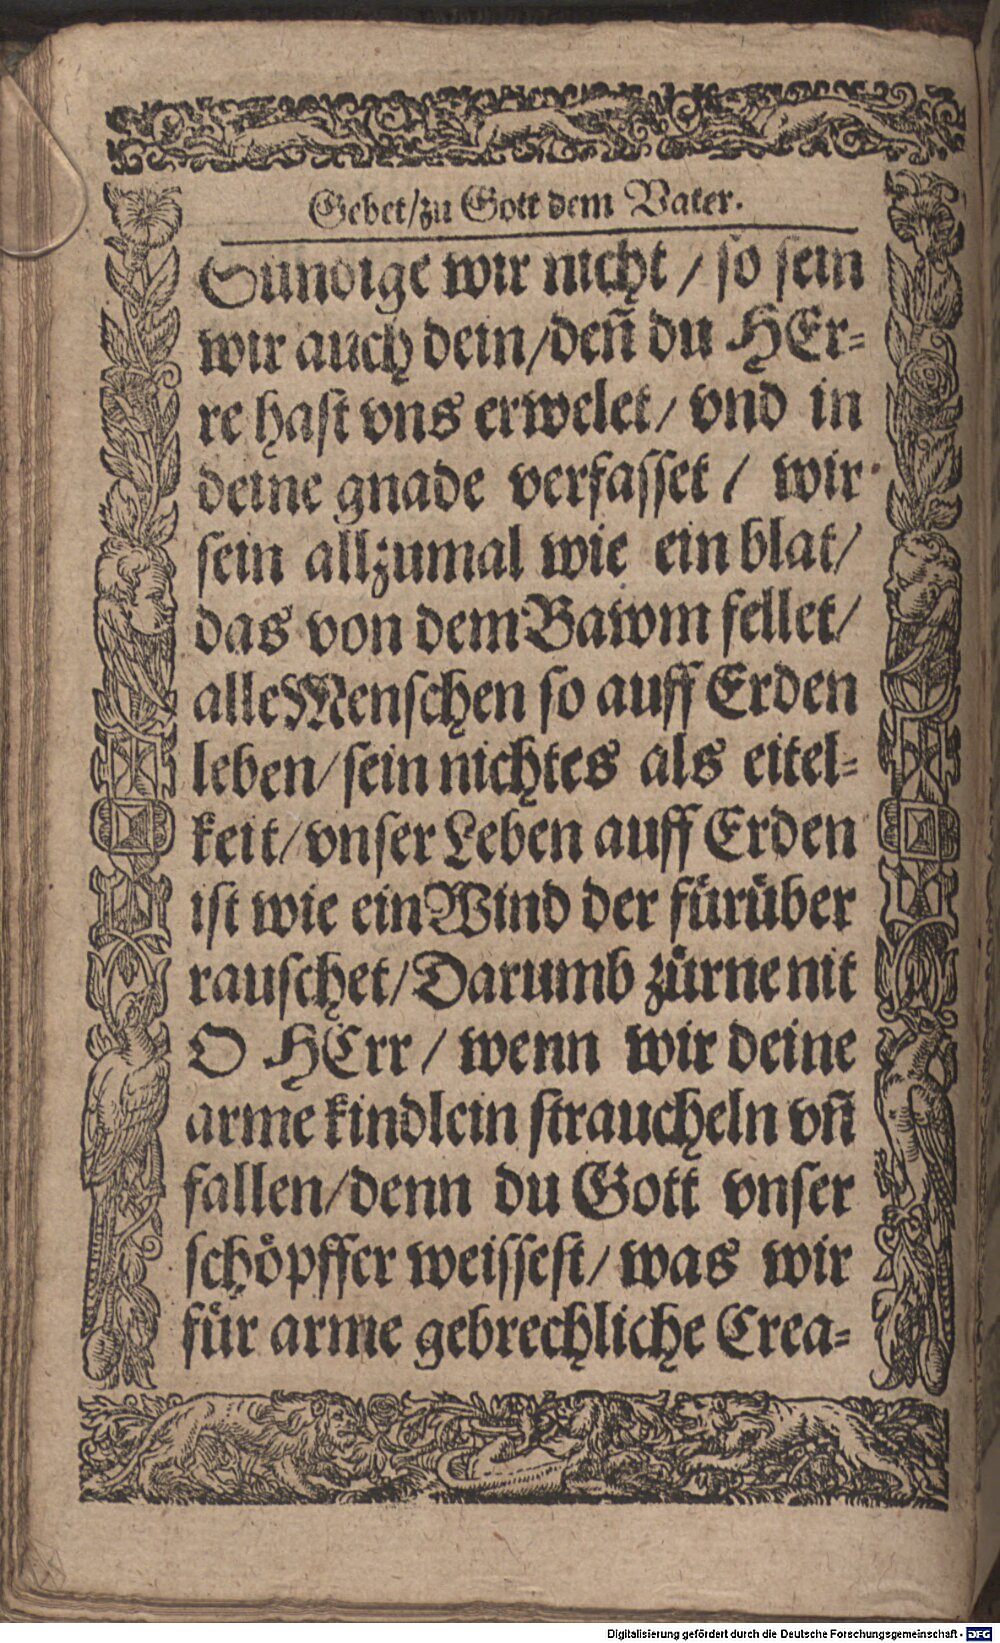 Gebet/zu Gott dem Vater.
Sündige wir nicht / so sein
wir auch dein/deñ du HEr=
re hast vns erwelet/ vnd in
deine gnade verfasset / wir
sein allzumal wie ein blat/
das von dem Bawm fellet/
alle Menschen so auff Erden
leben/sein nichtes als eitel=
keit/vnser Leben auff Erden
ist wie ein Wind der fürüber
rauschet/Darumb zürne nit
O HErr / wenn wir deine
arme kindlein straucheln vñ
fallen/denn du Gott vnser
schöpffer weissest/was wir
für arme gebrechliche Crea=
Digitalisierung gefördert durch die Deutsche Forschungsgemeinschaft - DFG